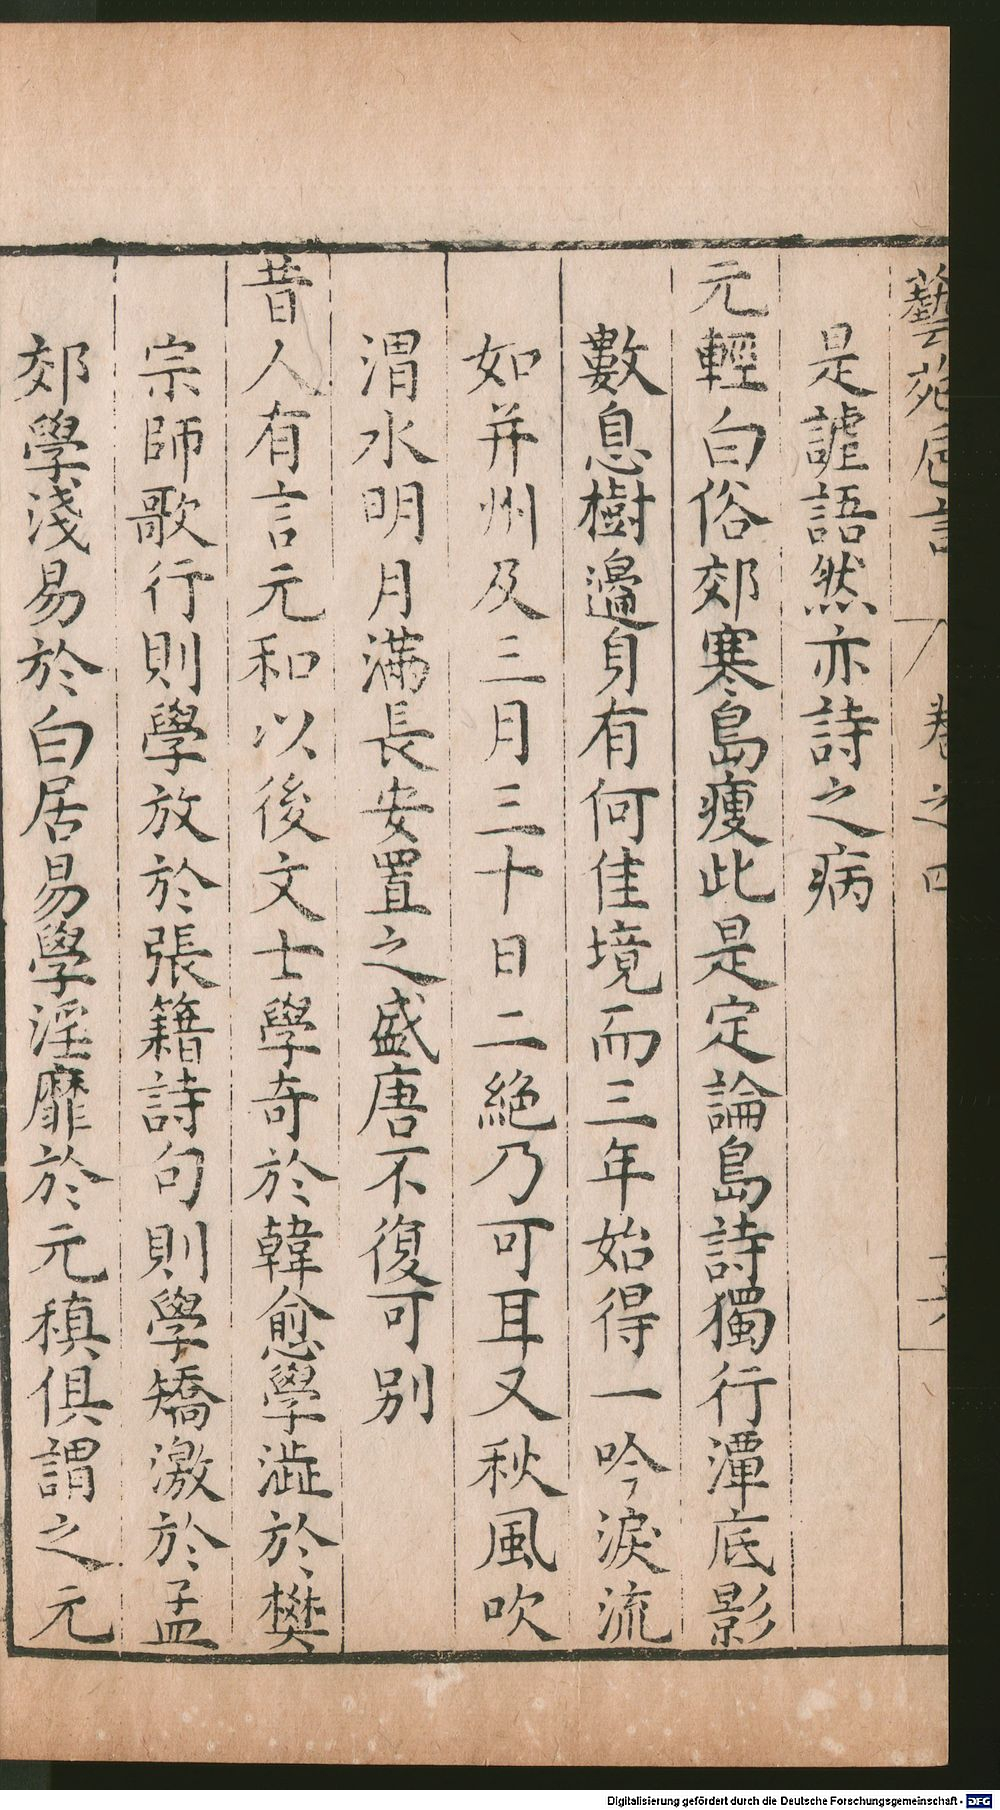 藝苑巵言 卷之四
是謔語然亦詩之病
元輕白俗郊寒島瘦此是定論島詩獨行潭底影
數息樹邊身有何佳境而三年始得一吟淚流
如并州及三月三十日二絶乃可耳又秋風吹
渭水明月滿長安置之盛唐不復可别
昔人有言元和以後文士學奇於韓愈學澁於樊
宗師歌行則學放於張籍詩句則學矯激於孟
郊學淺易於白居易學淫靡於元稹俱謂之元
Digitalisierung gefördert durch die Deutsche Forschungsgemeinschaft - DFG